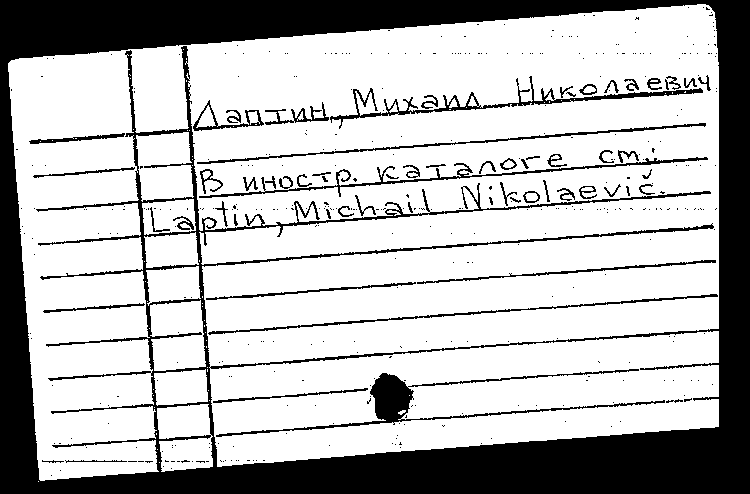 Лаптин, Михаил Николаевич
В иностр. каталоге см.:
Laptin, Michail Nikolaevič.